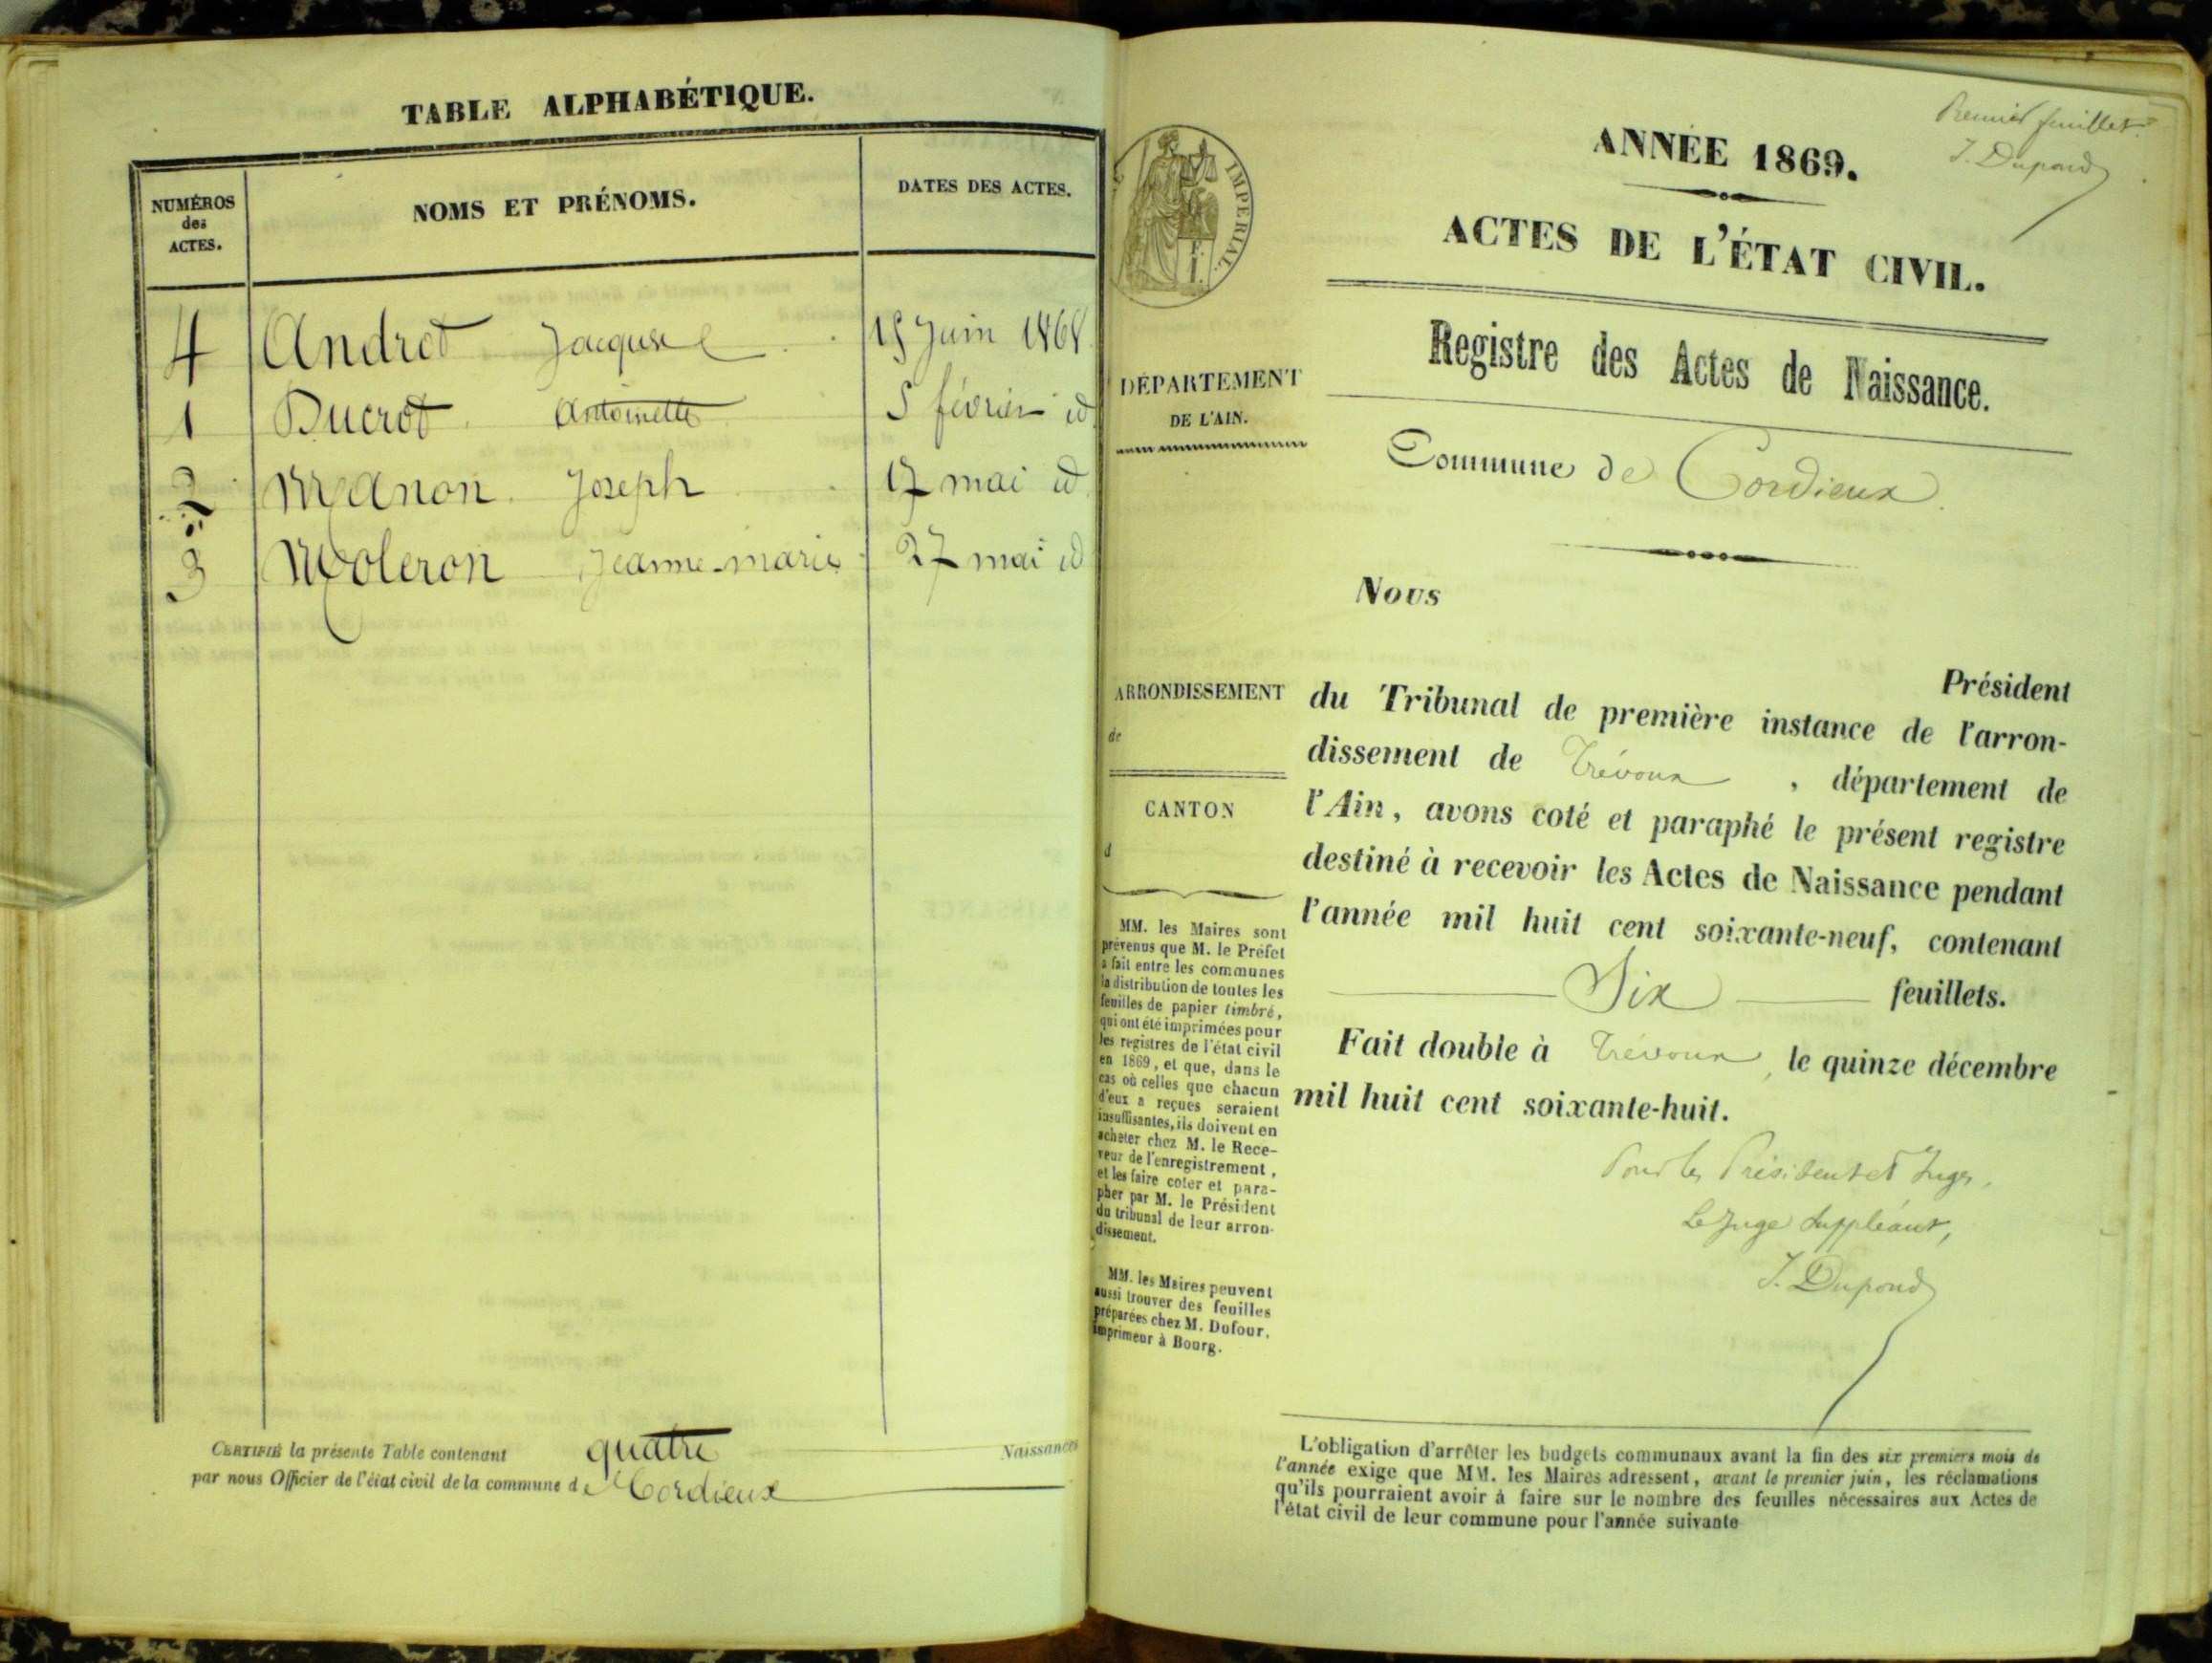 TABLE ALPHABÉTIQUE.
NUMÉROS des ACTES. NOMS ET PRÉNOMS. DATES DES ACTES.
4 Androt Jacques 15 Juin 1868
1 Ducrot Antoinette 5 février id
2 Manon Joseph 17 mai id
3 Moleron Jeanne-marie 27 mai id
CERTIFIÉ la présente Table contenant quatre Naissances
par nous Officier de l'état civil de la commune de Cordieux
Premier feuillet.
J. Dupond
IMPÉRIAL.
ANNÉE 1869.
ACTES DE L'ÉTAT CIVIL.
Registre des Actes de Naissance.
DÉPARTEMENT
DE L'AIN.
Commune de Cordieux.
Nous
Président
ARRONDISSEMENT
de
CANTON
d
du Tribunal de première instance de l'arron-
dissement de Trévoux, département de
l'Ain, avons coté et paraphé le présent registre
destiné à recevoir les Actes de Naissance pendant
l'année mil huit cent soixante-neuf, contenant
Six feuillets.
Fait double à Trévoux, le quinze décembre
mil huit cent soixante-huit.
Pour les Président et Juges,
Le Juge Suppléant,
J. Dupond
MM. les Maires sont
prévenus que M. le Préfet
a fait entre les communes
la distribution de toutes les
feuilles de papier timbré,
qui ont été imprimées pour
les registres de l'état civil
en 1869, et que, dans le
cas où celles que chacun
d'eux a reçues seraient
insuffisantes, ils doivent en
acheter chez M. le Rece-
veur de l'enregistrement,
et les faire coter et para-
pher par M. le Président
du tribunal de leur arron-
dissement.
MM. les Maires peuvent
aussi trouver des feuilles
préparées chez M. Dufour,
imprimeur à Bourg.
L'obligation d'arrêter les budgets communaux avant la fin des six premiers mois de
l'année exige que MM. les Maires adressent, avant le premier juin, les réclamations
qu'ils pourraient avoir à faire sur le nombre des feuilles nécessaires aux Actes de
l'état civil de leur commune pour l'année suivante